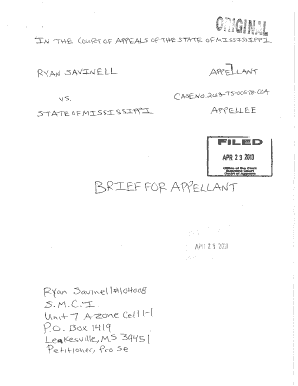 ORIGINAL
IN THE COURT OF APPEALS OF THE STATE OF MISSISSIPPI
RYAN SAVINELL APPELLANT
VS. CASE NO.
STATE OF MISSISSIPPI APPELLEE
FILED
APR 29 2013
Office of the Clerk
Supreme Court
Court of Appeals
BRIEF FOR APPELLANT
APR 29 2013
Ryan Savinell #104008
S.M.C.I
Unit 7 A zone Cell 1-1
P.O. Box 1419
Leakesville, MS 39451
Petitioner, Pro Se